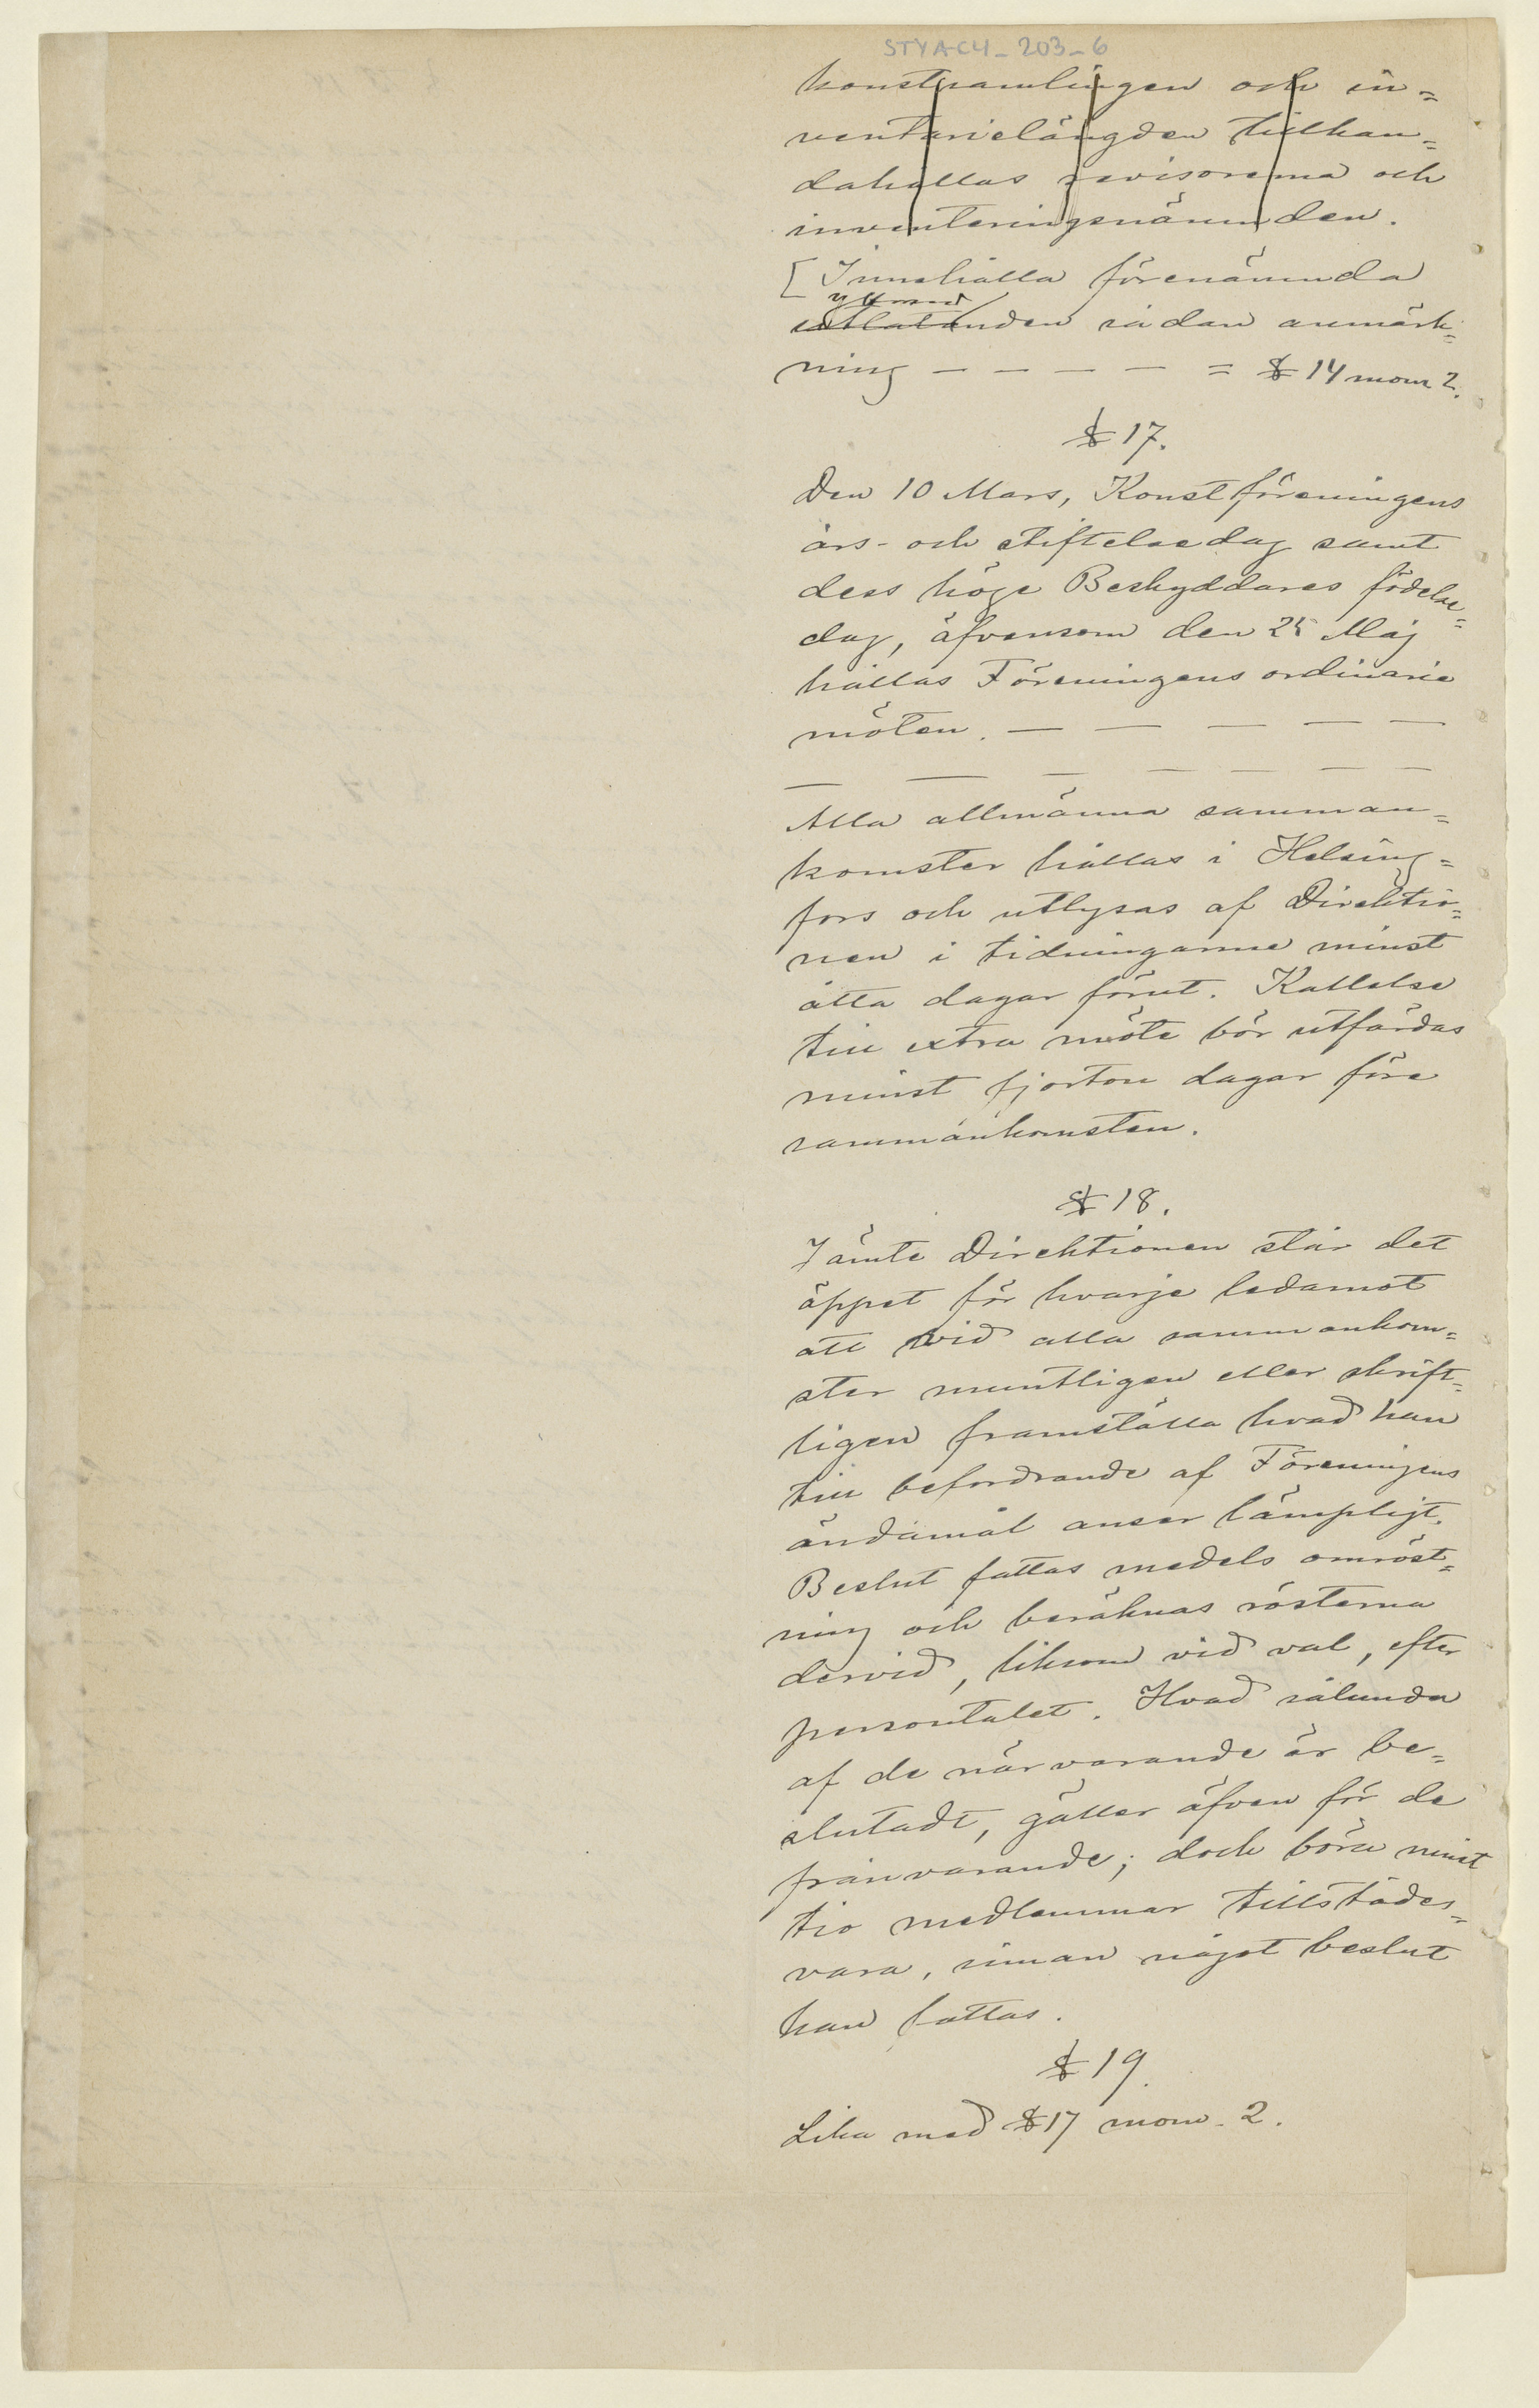 STYA-C4_203_6
konstsamlingen och in=
ventarielängden tillhan=
dahållas revisorerna och
inventeringsnämnden.
[Innehålla förenämnda
utlåtanden sådan anmärk=
ning — — — — = § 14 mom 2.
§ 17.
Den 10 Mars, Konstföreningens
års- och stiftelsedag samt
dess höge Beskyddares födelse=
dag, äfvensom den 25 Maj
hållas Föreningens ordinarie
möten. — — — — —
— — — — — — —
Alla allmänna samman=
komster hållas i Helsing=
fors och utlysas af Direktio=
nen i tidningarne minst
åtta dagar förut. Kallelse
till extra möte bör utfärdas
minst fjorton dagar före
sammankomsten.
§ 18.
Jämte Direktionen står det
öppet för hvarje ledamot
att vid alla sammankom=
ster muntligen eller skrift=
ligen framställa hvad han
till befordrande af Föreningens
ändamål anser lämpligt.
Beslut fattas medels omröst=
ning och beräknas rösterna
dervid, liksom vid val, efter
persontalet. Hvad sålunda
af de närvarande är be=
slutadt, gäller äfven för de
frånvarande; doch böra minst
tio medlemmar tillstädes=
vara, innan något beslut
kan fattas.
§ 19.
Lika med § 17 mom. 2.